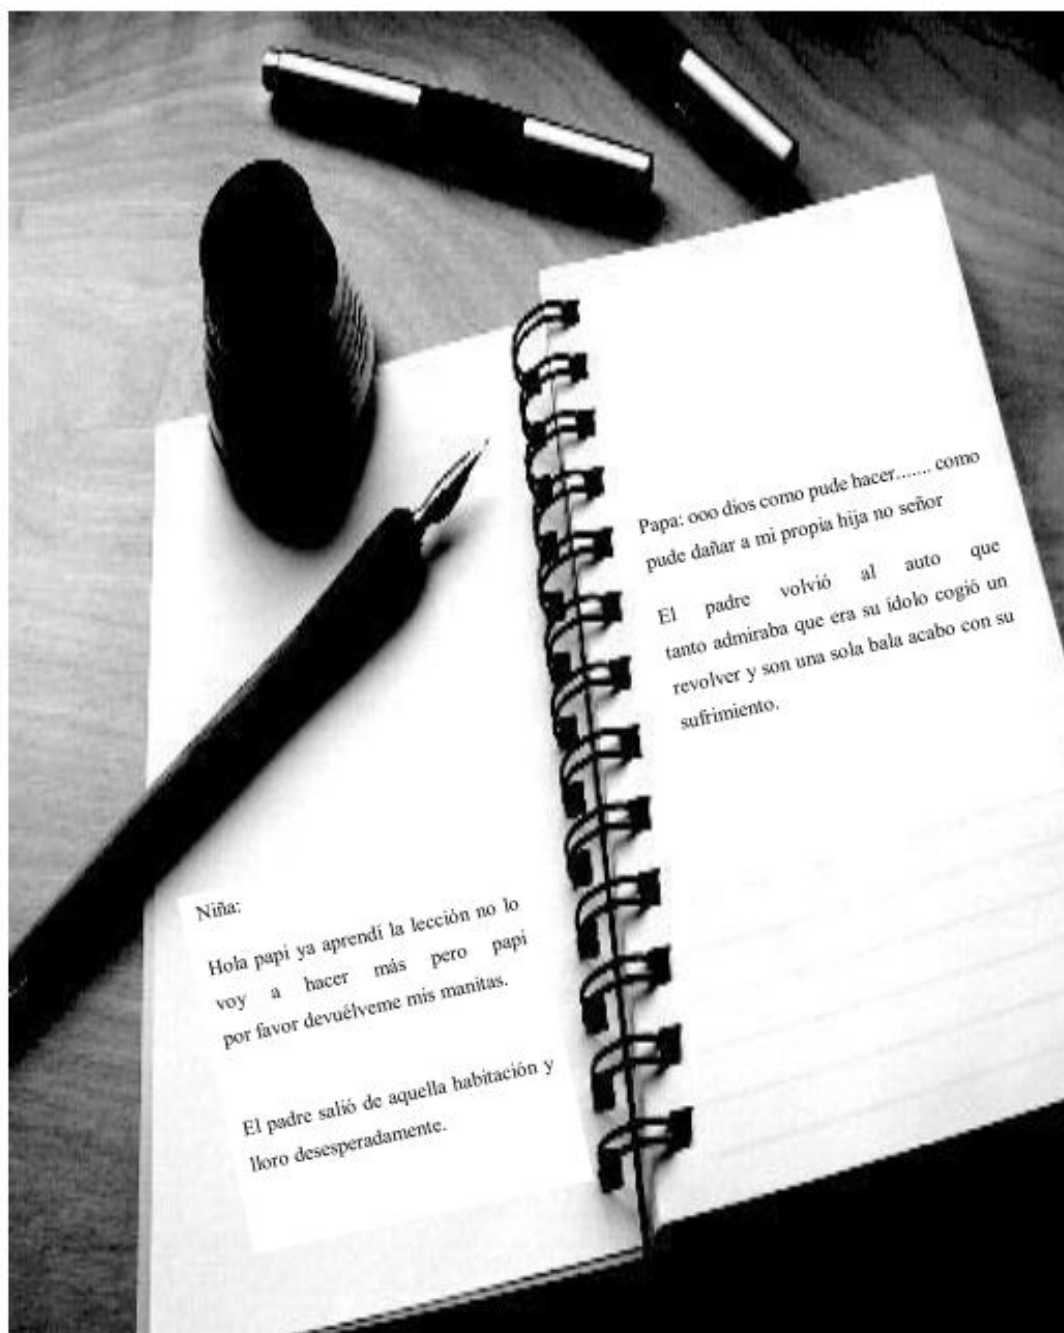 Niña:
Hola papi ya aprendí la lección no lo
voy a hacer más pero papi
por favor devuélveme mis manitas.
El padre salió de aquella habitación y
lloro desesperadamente.
Papa: ooo dios como pude hacer....... como
pude dañar a mi propia hija no señor
El padre volvió al auto que
tanto admiraba que era su ídolo cogió un
revolver y son una sola bala acabo con su
sufrimiento.